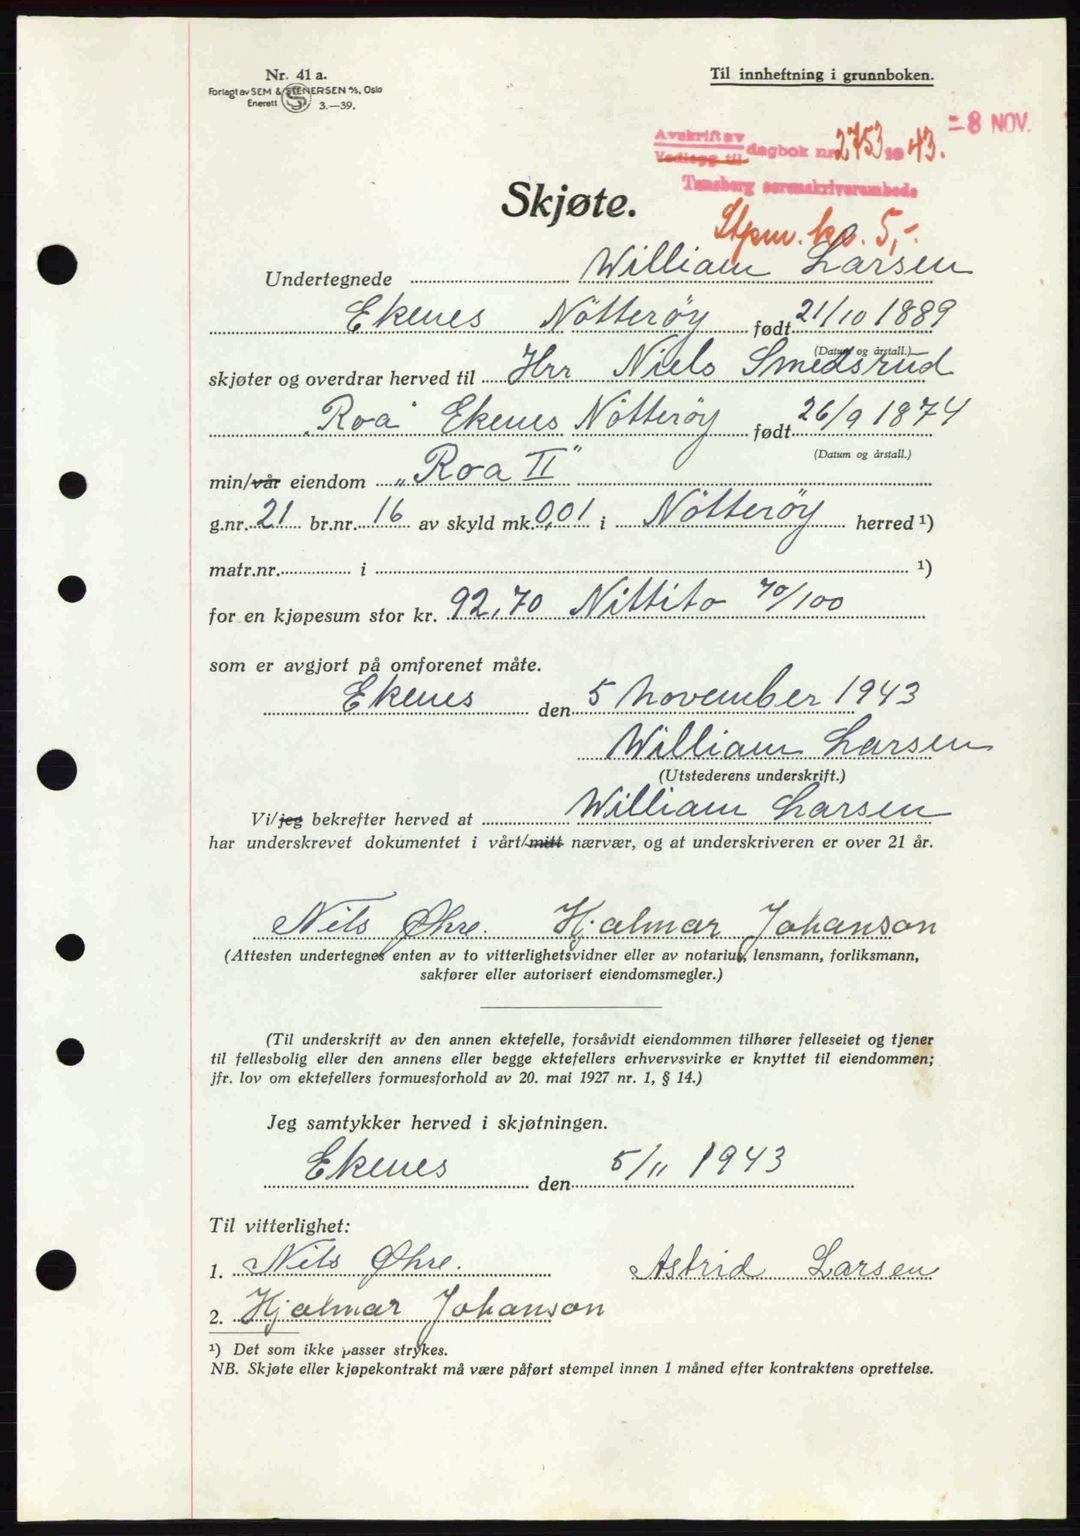 Nr. 41 a.
Forlagt av SEM & STENERSEN A/S, Oslo
Enerett S 3.—39.
Til innheftning i grunnboken.
- 8 NOV.
Avskrift av
Vedlegg til dagbok nr 2753 1943.
Tønsberg sorenskriverembede
Skjøte.
Stpm. kr. 5,-.
Undertegnede William Larsen
Ekenes Nötterøy født 21/10 1889
(Datum og årstall.)
skjøter og overdrar herved til Hrr Niels Smedsrud
"Roa" Ekenes Nötterøy født 26/9 1874
(Datum og årstall.)
min/vår eiendom "Roa II"
g.nr. 21 br.nr. 16 av skyld mk. 0,01 i Nötterøy herred ¹)
matr.nr. i ¹)
for en kjøpesum stor kr. 92,70 Nittito 70/100
som er avgjort på omforenet måte.
Ekenes den 5 November 1943
William Larsen
(Utstederens underskrift.)
Vi/jeg bekrefter herved at William Larsen
har underskrevet dokumentet i vårt/mitt nærvær, og at underskriveren er over 21 år.
Nils Øhre. Hjalmar Johanson
(Attesten undertegnes enten av to vitterlighetsvidner eller av notarius, lensmann, forliksmann,
sakfører eller autorisert eiendomsmegler.)
(Til underskrift av den annen ektefelle, forsåvidt eiendommen tilhører felleseiet og tjener
til fellesbolig eller den annens eller begge ektefellers erhvervsvirke er knyttet til eiendommen;
jfr. lov om ektefellers formuesforhold av 20. mai 1927 nr. 1, § 14.)
Jeg samtykker herved i skjøtningen.
Ekenes den 5/11 1943
Til vitterlighet:
1. Nils Øhre. Astrid Larsen
2. Hjalmar Johanson
¹) Det som ikke passer strykes.
NB. Skjøte eller kjøpekontrakt må være påført stempel innen 1 måned efter kontraktens oprettelse.